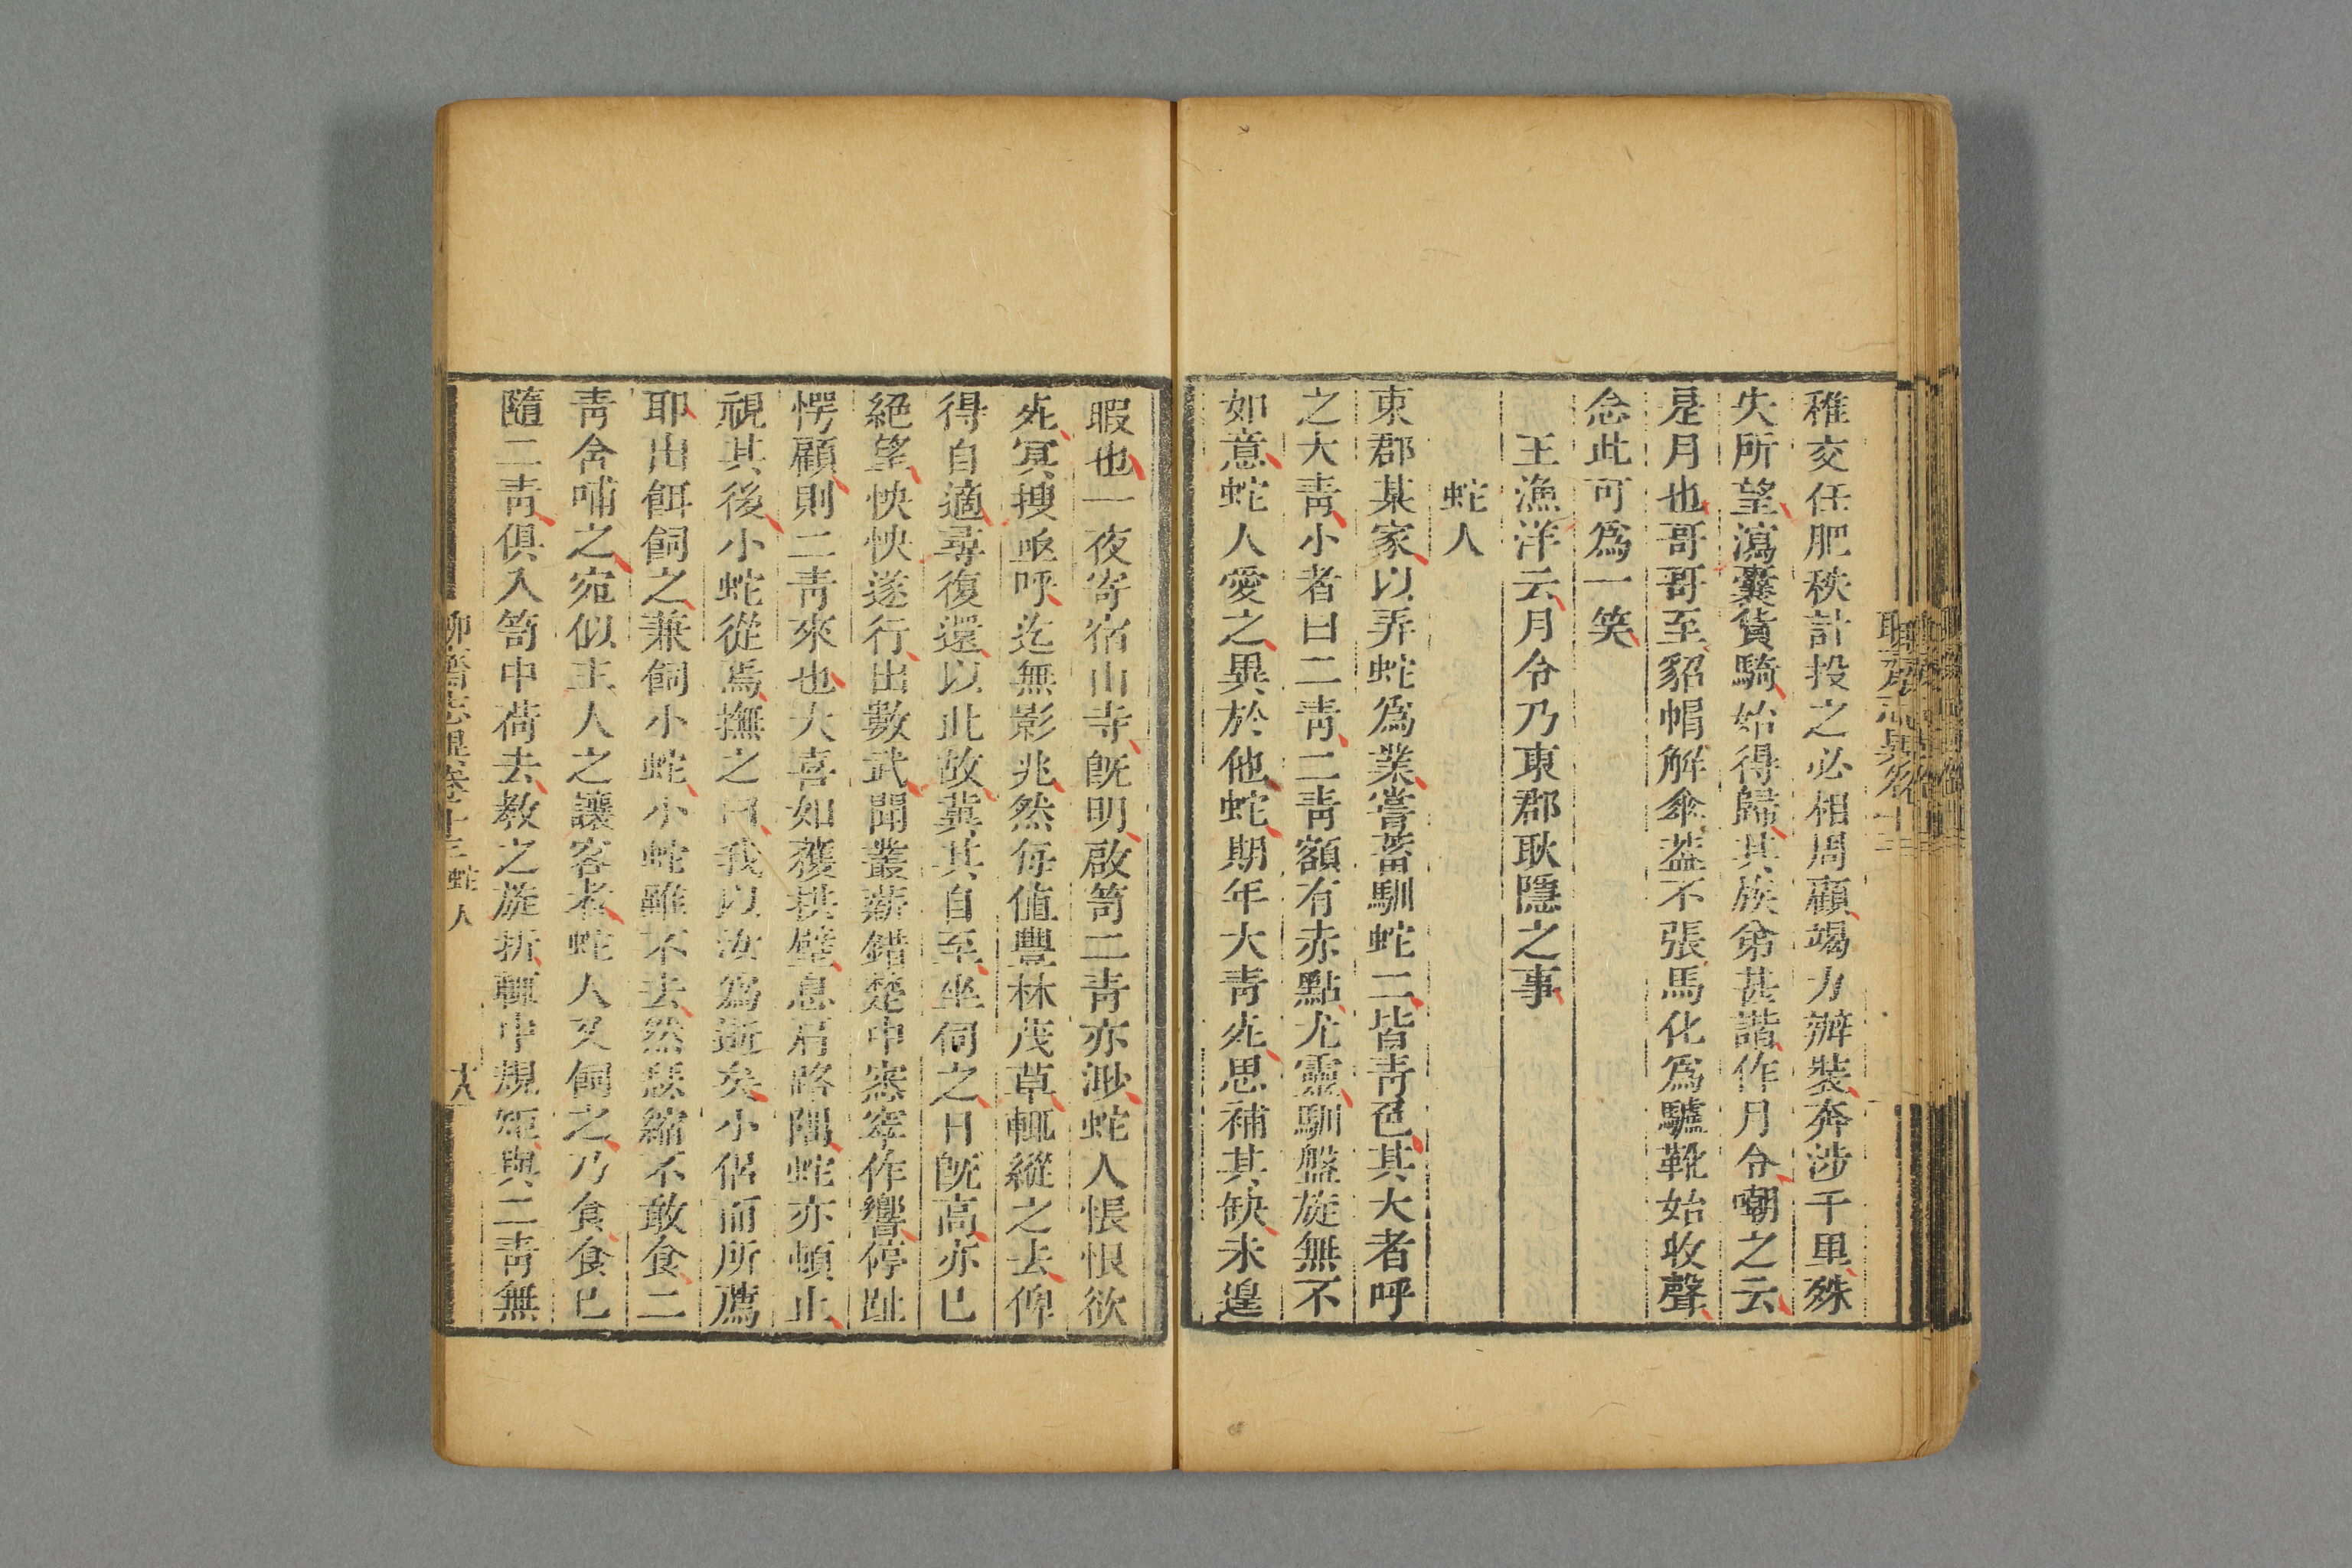 稚交任肥秩計投之必相周顧竭力辦裝奔涉千里殊
失所望瀉囊貨騎始得歸其族弟甚諧作月令嘲之云
是月也哥哥至貂帽解傘葢不張馬化爲驢靴始收聲
念此可爲一笑
王漁洋云月令乃東郡耿隱之事
蛇人
東郡某家以弄蛇爲業嘗蓄馴蛇二皆靑色其大者呼
之大靑小者曰二靑二靑額有赤點尤靈馴盤旋無不
如意蛇人愛之異於他蛇期年大靑死思補其缺未遑
暇也一夜寄宿山寺旣明啟笥二靑亦渺蛇人悵恨欲
死冥搜亟呼迄無影兆然每値豐林茂草輒縱之去俾
得自適尋復還以此故冀其自至坐伺之日旣高亦已
絕望怏怏遂行出數武聞叢薪錯楚中窸窣作響停趾
愕顧則二靑來也大喜如獲拱璧息肩路隅蛇亦頓止
視其後小蛇從焉撫之曰我以汝爲逝矣小侶而所薦
耶出餌飼之兼飼小蛇小蛇雖不去然瑟縮不敢食二
靑含哺之宛似主人之讓客者蛇人又飼之乃食食已
隨二靑俱入笥中荷去敎之旋折輒中規矩與二靑無
聊齋志異卷十三 蛇人 十八